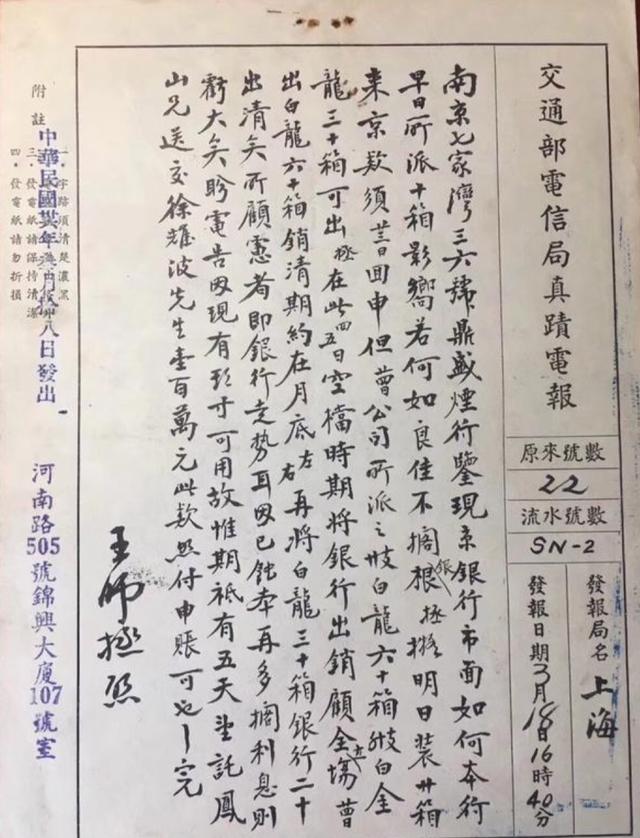 交通部電信局真蹟電報
原來號數
22
流水號數
SN-2
發報局名 上海
發報日期 3月18日16時40分
南京七家灣三六號鼎盛煙行鑒現京銀行市面如何本行
早日所派十箱影嚮若何如良佳不擱根銀極擬明日裝廿箱
來京款須廿三日回申但曾公司所派之妭白龍六十箱妭白金
龍三十箱可出極在此四五日空檔時期將銀行出銷顧全立場曾
出白龍六十箱銷清期約在月底左右再將白龍三十箱銀行二十
出清矣所顧憲者即銀行走勢耳因已蝕本再多擱利息則
虧大矣盼電告因現有頭寸可用故惟期祗有五天望託鳳
山兄送交徐雄波先生壹百萬元此款照付申賬可也完
王師極
附註
一．字跡須清楚濃黑
三．發電紙請保持清潔
四．發電紙請勿折損
中華民國 年 月 八日發出
河南路505號錦興大廈107號室